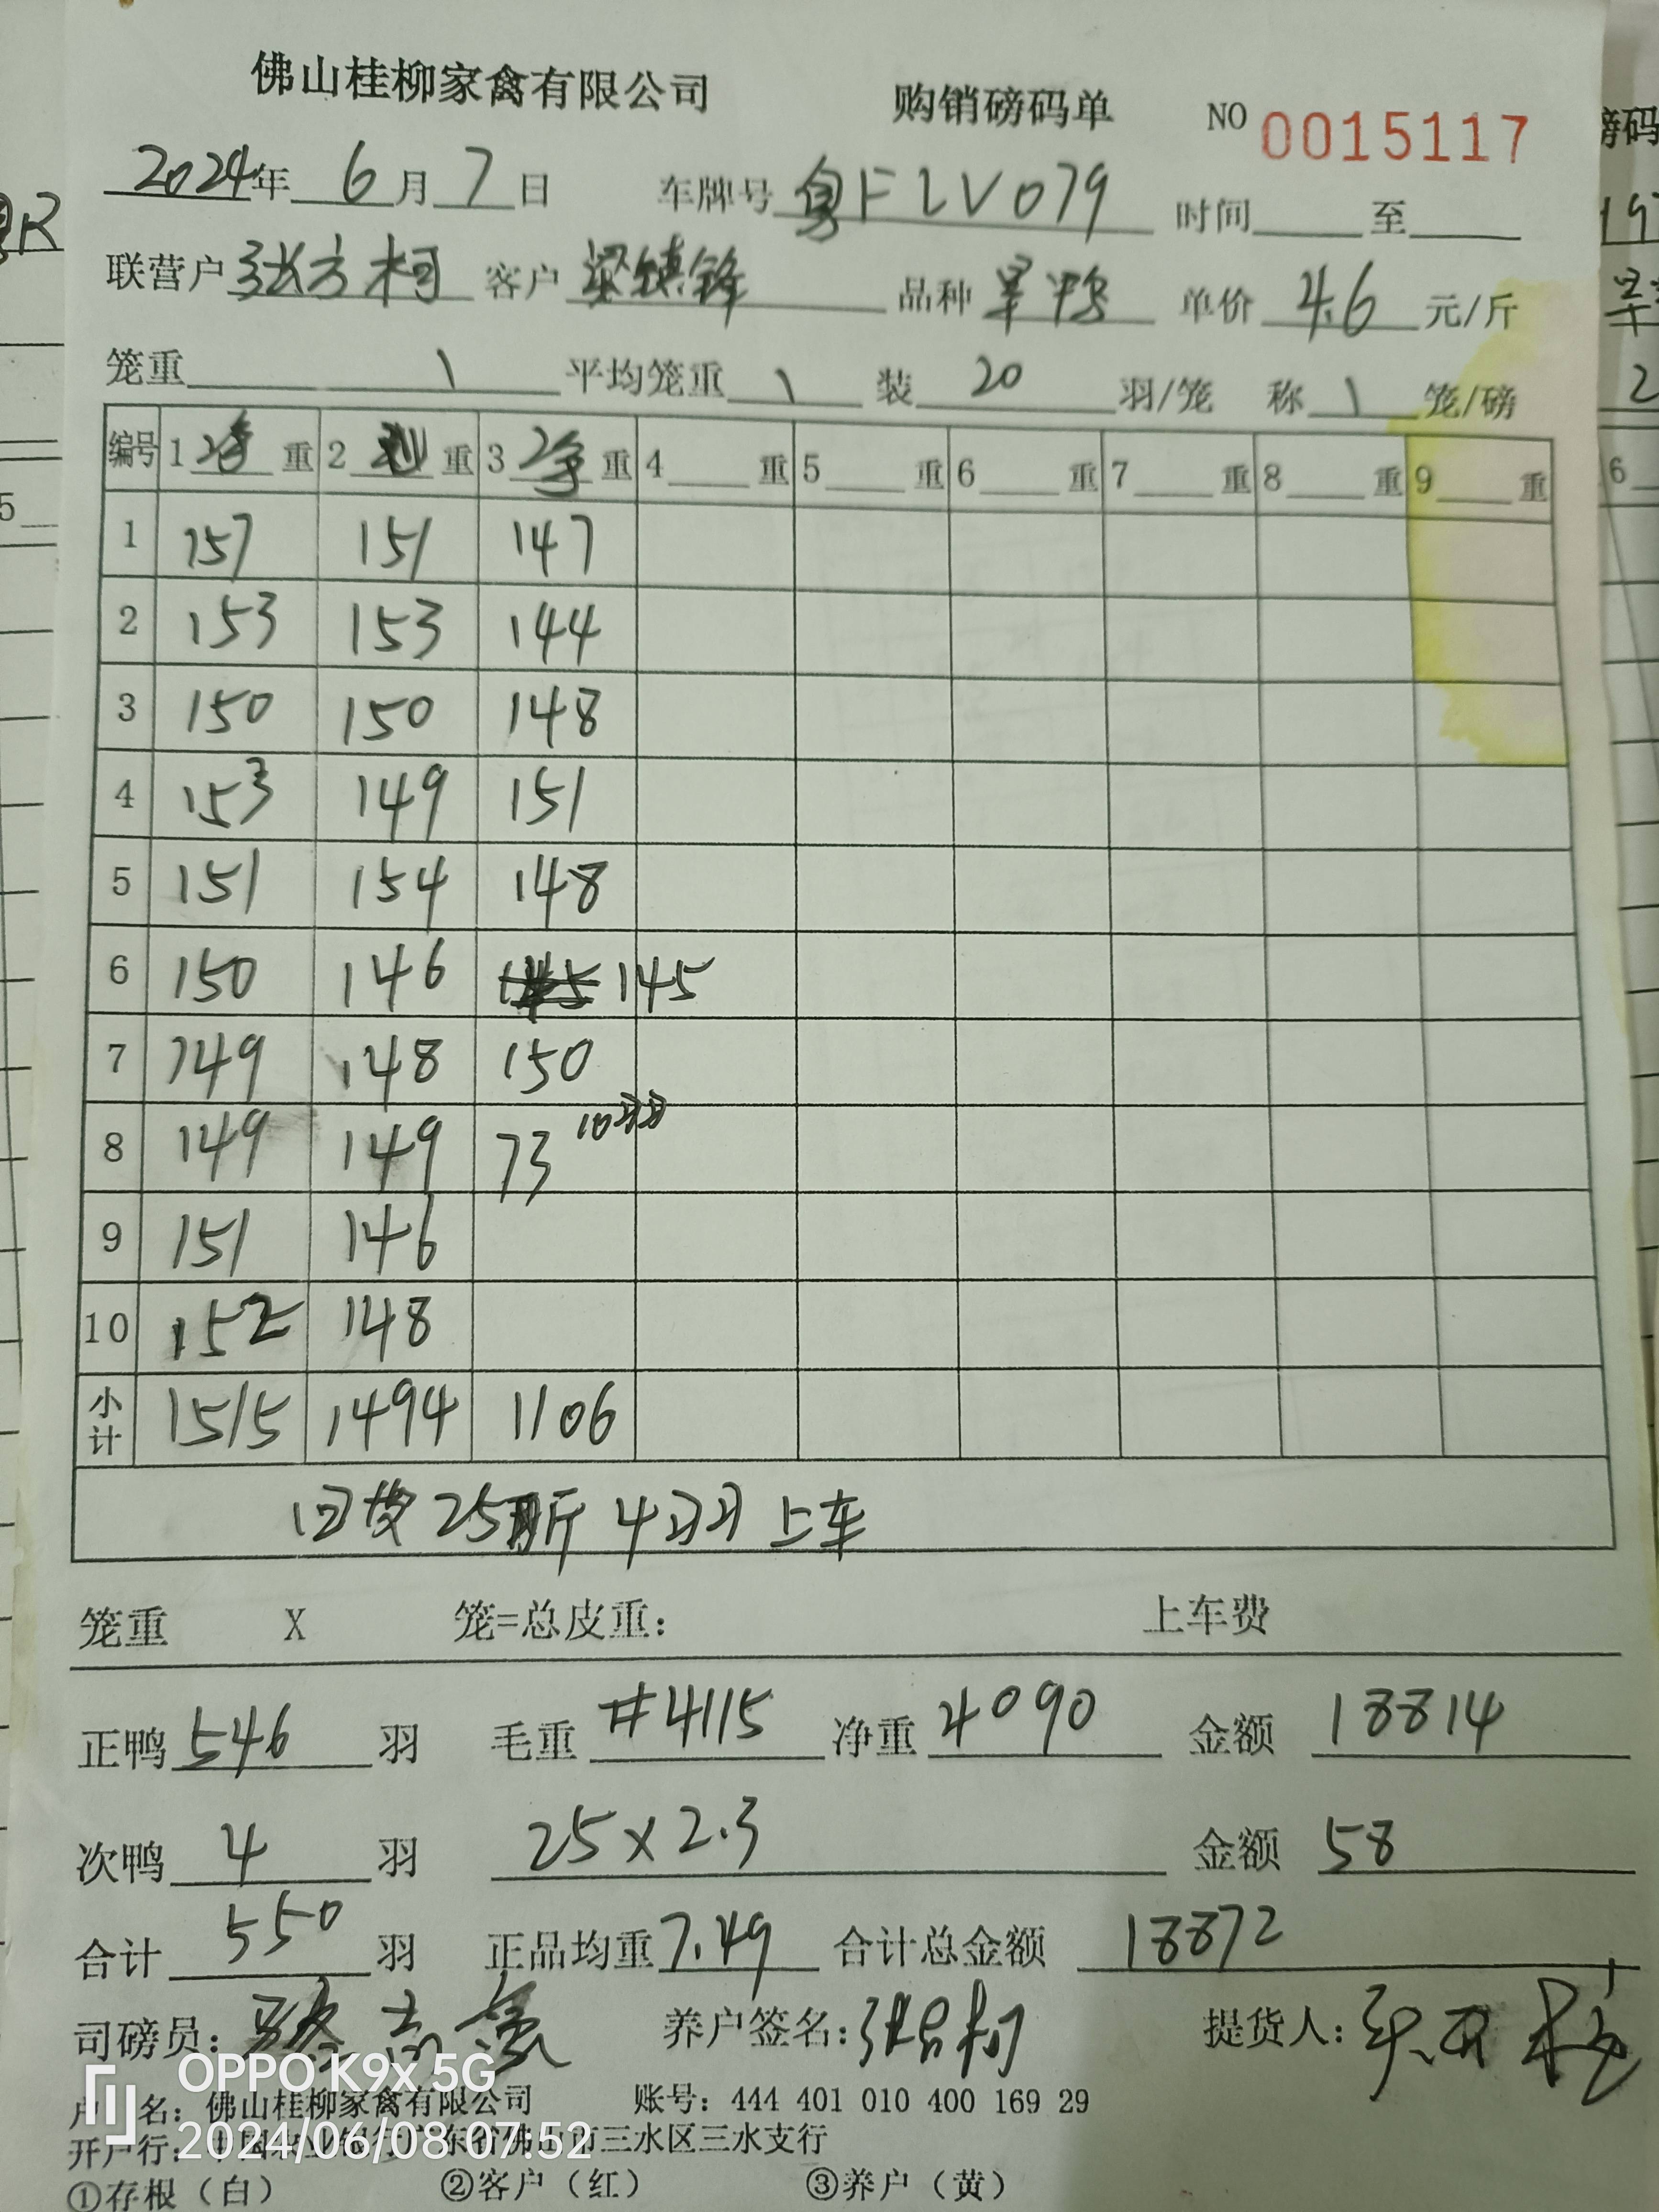 佛山桂柳家禽有限公司 购销磅码单 NO 0015117
2024年 6月 7日 车牌号 粤FLV079 时间 至
联营户 张方柯 客户 梁镇锋 品种 旱鸭 单价 4.6 元/斤
笼重 \ 平均笼重 \ 装 20 羽/笼 称 \ 笼/磅
编号 1 净 重 2 重 3 净 重 4 重 5 重 6 重 7 重 8 重 9 重
1 157 151 147
2 153 153 144
3 150 150 148
4 153 149 151
5 151 154 148
6 150 146 145
7 149 148 150
8 149 149 73 10羽
9 151 146
10 152 148
小计 1515 1494 1106
回货 25斤 4羽 上车
笼重 X 笼=总皮重： 上车费
正鸭 546 羽 毛重 4115 净重 4090 金额 18814
次鸭 4 羽 25×2.3 金额 58
合计 550 羽 正品均重 7.49 合计总金额 18872
司磅员： 养户签名： 提货人：
OPPO K9x 5G
户名：佛山桂柳家禽有限公司 账号：444 401 010 400 169 29
2024/06/08 07:52
开户行：中国农业银行广东省佛山市三水区三水支行
①存根（白） ②客户（红） ③养户（黄）